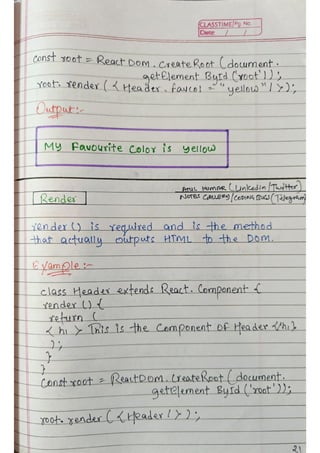 CLASSTIME Pg. No.
Date / /
const root = React Dom. create Root (document.
getElement ById ('root'));
root. render (< Header. favcol = "yellow" / >);
Output:-
My Favourite Color is yellow
ATUL KUMAR (Linkedin/Twitter)
Render
NOTES GALLERY/CODING BUGS (Telegram)
render () is required and is the method
that actually outputs HTML to the Dom.
Example:-
class Header extends React. Component {
render () {
return (
< h1 > This is the Component OF Header </h1>
);
}
}
Const root = ReactDom. CreateRoot (document.
getElement ById ('root'));
root. render (< Header / >);
21